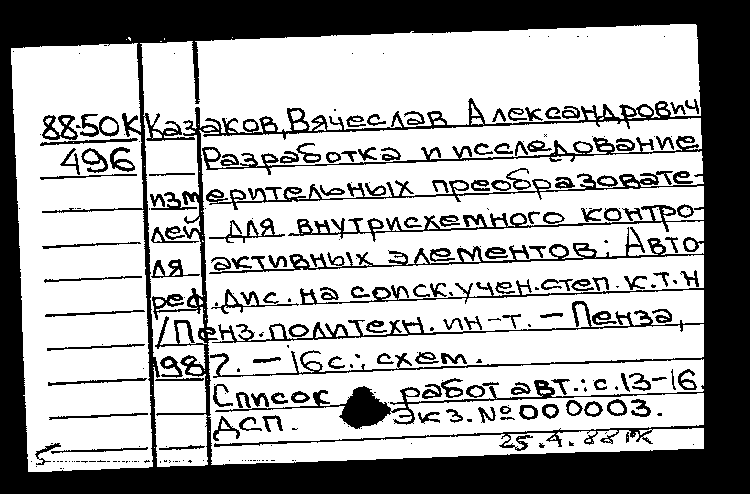 88-50К Казаков, Вячеслав Александрович
496 Разработка и исследование
измерительных преобразовате-
лей для внутрисхемного контро-
ля активных элементов: Авто-
реф. дис. на соиск. учен. степ. к.т.н
/Пенз. политехн. ин-т. – Пенза,
1987. – 16 с.: схем.
Список работ авт.: с. 13-16.
ДСП. Экз. № 000003.
25.4.88